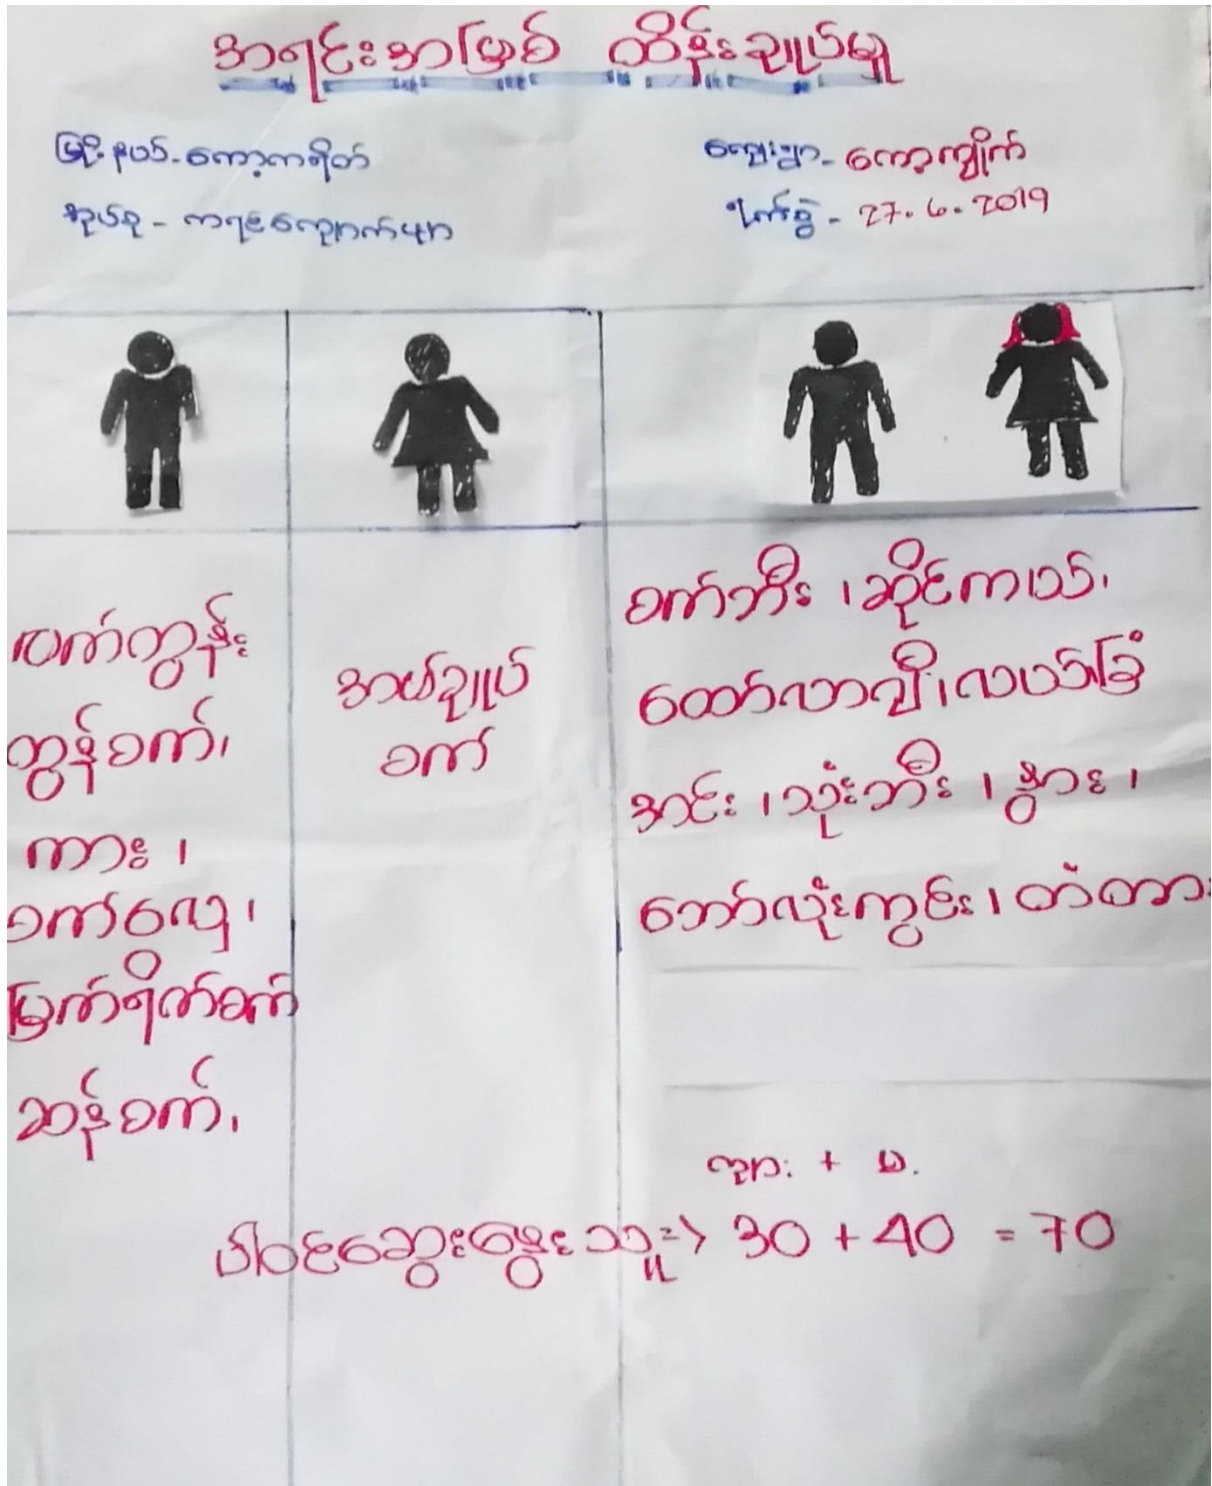 အရင်းအမြစ် ထိန်းချုပ်မှု
မြို့နယ် - ကော့ကရိတ်
ကျေးရွာ - ကော့ကျိုက်
အုပ်စု - ကရင်ကျောက်ဖျာ
ရက်စွဲ - 27.6.2019
လက်တွန်း
တွန်စက်၊
ကား၊
စက်လှေ၊
မြက်ရိတ်စက်
ဆန်စက်၊
အပ်ချုပ်
စက်
စက်ဘီး၊ ဆိုင်ကယ်၊
ထော်လာဂျီ၊ လယ်ခြံ
အင်း၊ သုံးဘီး၊ နွား၊
ဘော်လုံးကွင်း၊ တံတား
ကျား + မ.
ပါဝင်ဆွေးနွေးသူ => 30 + 40 = 70